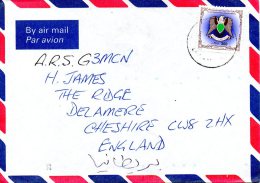 By air mail
Par avion
A.R.S. G3MCN
H. JAMES
THE RIDGE
DELAMERE
CHESHIRE CW8 2HX
ENGLAND
بريطانيا